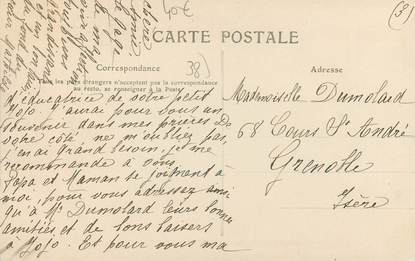 40€
38)
59
CARTE POSTALE
Correspondance
Tous les pays étrangers n'acceptent pas la correspondance
au recto, se renseigner à la Poste
Adresse
l'éducatrice de votre petit
Jojo. J'aurai pour vous un
souvenir dans mes prières De
votre côté ne m'oubliez pas,
j'en ai grand besoin, je me
recommande à vous
Papa et Maman se joignent à
moi, pour vous adressez ainsi
qu'à Mr Dumolard leurs bonnes
amitiés et de bons baisers
à Jojo. Et pour vous ma
Mademoiselle Dumolard
68 Cours St André
Grenoble
Isère